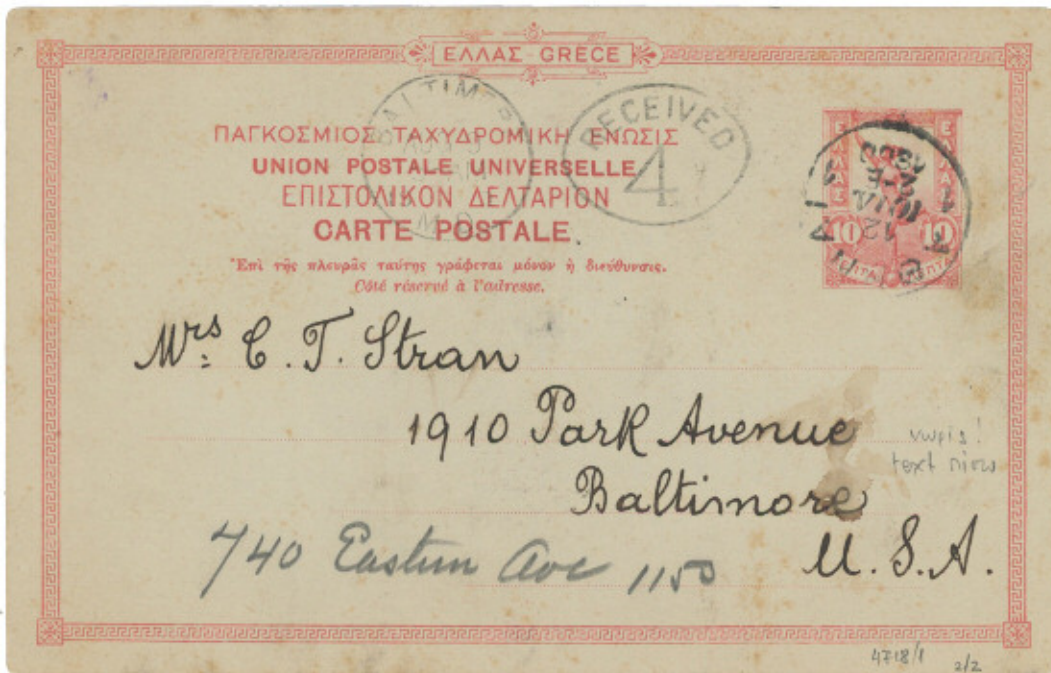 ΕΛΛΑΣ-GRÈCE
ΠΑΓΚΟΣΜΙΟΣ ΤΑΧΥΔΡΟΜΙΚΗ ΕΝΩΣΙΣ
UNION POSTALE UNIVERSELLE
ΕΠΙΣΤΟΛΙΚΟΝ ΔΕΛΤΑΡΙΟΝ
CARTE POSTALE
Ἐπὶ τῆς πλευρᾶς ταύτης γράφεται μόνον ἡ διεύθυνσις.
Côté réservé à l'adresse.
RECEIVED
4
10 10
12
1900
Mrs. C. T. Stran
1910 Park Avenue
Baltimore
U. S. A.
740 Eastern Ave 1150
νωρίς!
text πίσω
4718/1
2/2